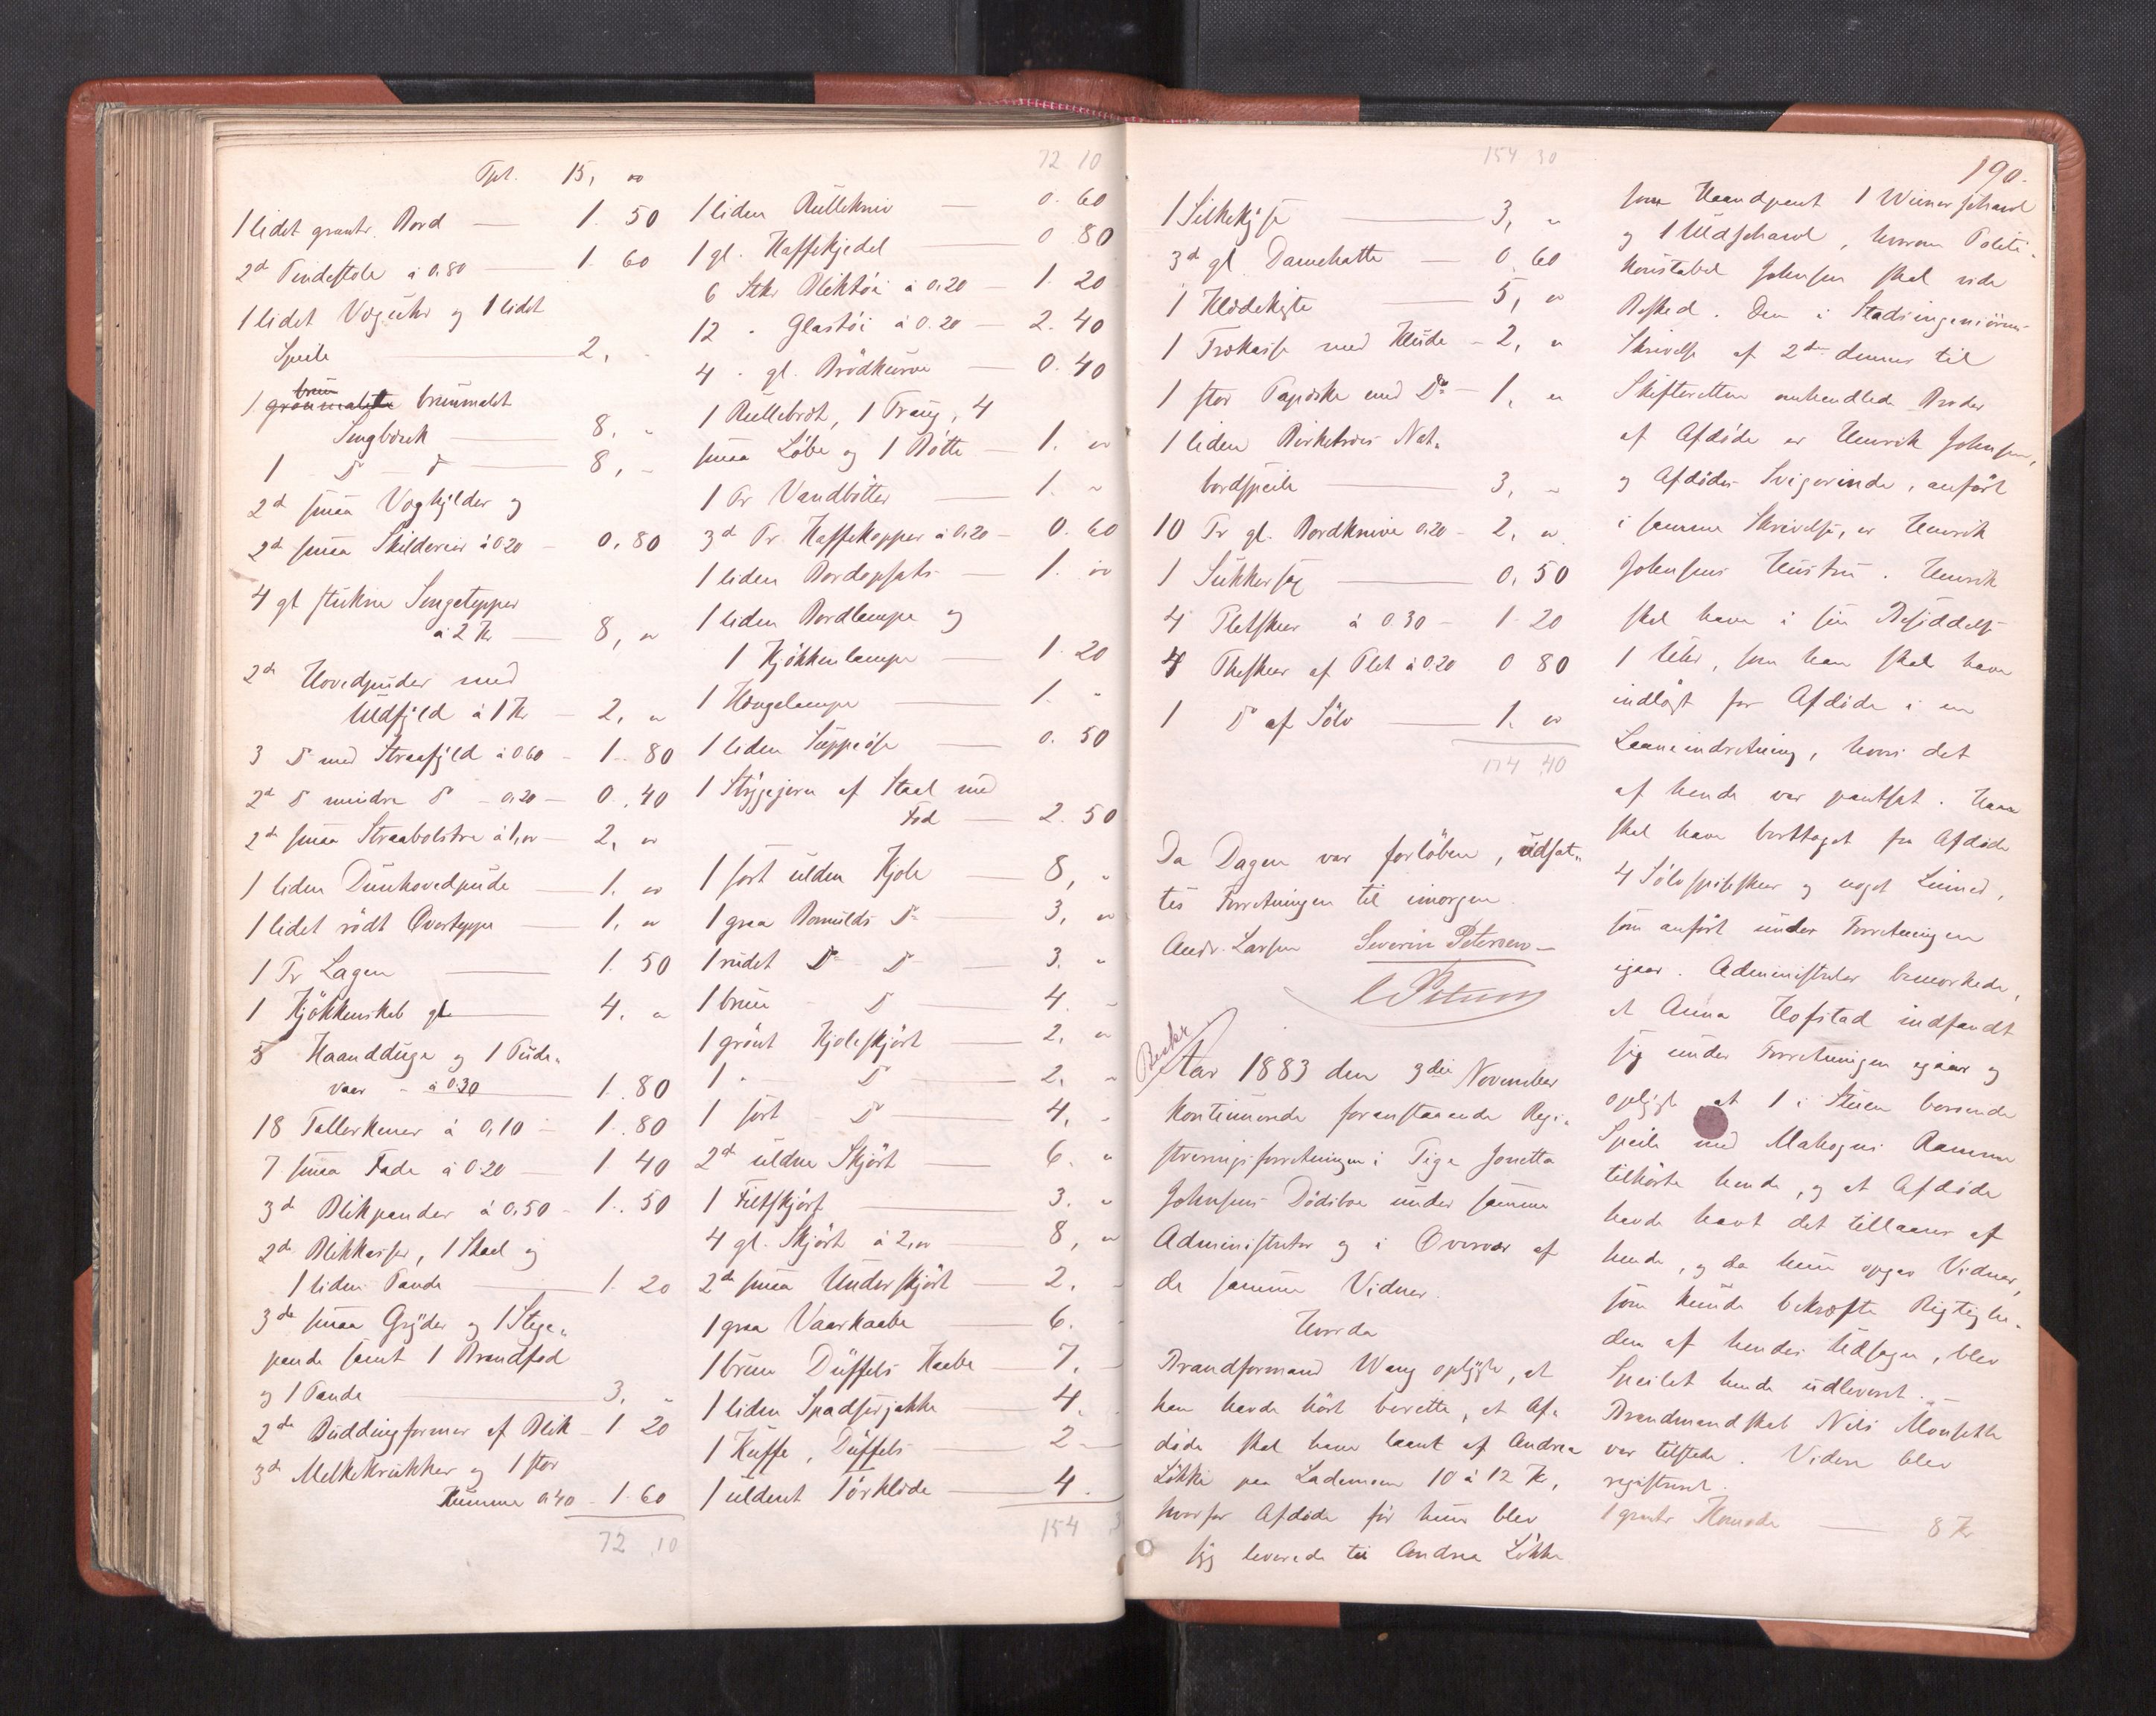 Tpt. 15, "
1 lidet grantr. Bord — 1. 50
2de Pindestole à 0.80 — 1. 60
1 lidet Vægúhr og 1 lidet
Speile — 2, -
brún
1 grönmalet brúnmalet
Sengbænk — 8. -
1 D° — D° — 8, -
2de smaa Væghylder og
2de smaa Skilderier à 0.20 - 0. 80
4 gl stúkne Sengetepper
à 2 Kr — 8, "
2de Hovedpúder med
Uldfyld à 1 Kr — 2, "
3 D° med Straafyld à 0.60 - 1. 80
2de D° mindre D° - 0.20 - 0. 40
2de smaa Straabolstre à 1," - 2, "
1 liden Dúnhovedpúde — 1. "
1 lidet rödt Overteppe — 1, "
1 Pr Lagen — 1. 50
1 Kjökkenskab gl — 4. "
5 Haanddúge og 1 Púde-
vaar - à 0.30 — 1. 80
18 Tallerkener à 0,10 - 1. 80
7 smaa Fade à 0.20 — 1 40
3de Blikpander à 0.50 - 1. 50
2de Blikkasser, 1 Skaal og
1 liden Pande — 1. 20
3de smaa Gryder og 1 Stege-
pande samt 1 Brandfad
og 1 Pande — 3. "
2de Búddingformer af Blik - 1 20
3de Melkekrúkker og 1 stor
Kúmme 0.40 - 1. 60
72 10
72 10
1 liden Rúllekniv — 0. 60
1 gl. Kaffekjedel — 0 80
6 Stkr Bliktöi à 0.20 - 1. 20
12 " Glastöi à 0.20 — 2. 40
4 " gl. Brödkúrve — 0. 40
1 Rúllebræt, 1 Traúg, 4
smaa Löbe og 1 Bötte — 1. "
1 Pr Vandbötter — 1. "
3de Pr. Kaffekopper à 0.20 - 0. 60
1 liden Bordopsats — 1. "
1 liden Bordlampe og
1 Kjökkenlampe — 1. 20
1 Hængelampe — 1. "
1 liden Súppeöse — 0. 50
1 Strygejern af Staal med
Fod — 2. 50
1 sort úlden Kjole — 8, "
1 graa Bomúlds D° — 3, "
1 rúdet D° D° — 3. "
1 brún - D° — 4. "
1 grönt Kjoleskjört — 2. "
1 " - D° — 2. "
1 sort - D° — 4. "
2de úldne Skjört — 6. "
1 Filtskjört — 3. "
4 gl. Skjört à 2," — 8, "
2de smaa Underskjört — 2. "
1 graa Vaarkaabe — 6. "
1 brún Dúffels Kaabe — 7. -
1 liden Spadserjakke — 4.
1 Kúffe, Dúffels — 2 -
1 úldent Törklæde — 4.
154 3
154 30
1 Silkekjse — 3, "
3de gl. Damehatte — 0. 60
1 Klædekiste — 5, "
1 Trækasse med Klúde - 2, "
1 stor Papæske med D° - 1, "
1 liden Birketræs Nat-
bordspeile — 3, "
10 Pr gl. Bordknive 0.20 - 2, "
1 Súkkersax — 0. 50
4 Pletskeer à 0.30 - 1 20
4 Theskeer af Plet à 0.20 0 80
1 D° af Sölv — 1. "
174 40
Da Dagen var forlöben, údsat-
tes Forretningen til imorgen.
Andr. Larsen Severin Petersen
C Petersen
Aar 1883 den 3die November
kontinúeredes foranstaaende Regi-
streringsforretningen i Pige Jonetta
Johnsens Dödsboe únder samme
Administrator og i Overvær af
de samme Vidner.
Hvorda
Brandformand Wang oplyste, at
han havde hört berette, at Af-
döde skal have laant af Andrea
Lökke paa Lademoen 10 à 12 Kr,
hvorfor Afdöde för hún blev
syg leverede til Andrea Lökke
190.
som Haandpant 1 Wienerschavl
og 1 Uldschavl, hvorom Politi-
konstabel Johnsen skal vide
Besked. Den i Stadsingeniörens
Skrivelse af 2den dennes til
Skifteretten omhandlede Broder
af Afdöde er Henrik Johnsen,
og Afdödes Svigerinde, anfört
i samme Skrivelse, er Henrik
Johnsens Hústrú. Henrik
skal have i sin Besiddelse
1 Uhr, som han skal have
indlöst for Afdöde i en
Laaneindretning, hvori det
af hende var pantsat. Han
skal have borttaget fra Afdöde
4 Sölvspiseskeer og noget Linned,
som anfört únder Forretningen
igaar. Administrator bemærkede,
at Anna Hofstad indfandt
sig únder Forretningen igaar og
oplyste at 1 i Stúen værende
Speile med Mahogni Ramme
tilhörte hende, og at Afdöde
havde havt det tillaans af
hende, og da hún opgav Vidner,
som kúnde bekræfte Rigtighe-
den af hendes Udsagn, blev
Speilet hende údleveret. -
Brandmandskab Nils Mönseth
var tilstede. Videre blev
registreret.
1 grantr Komode — 8 Kr